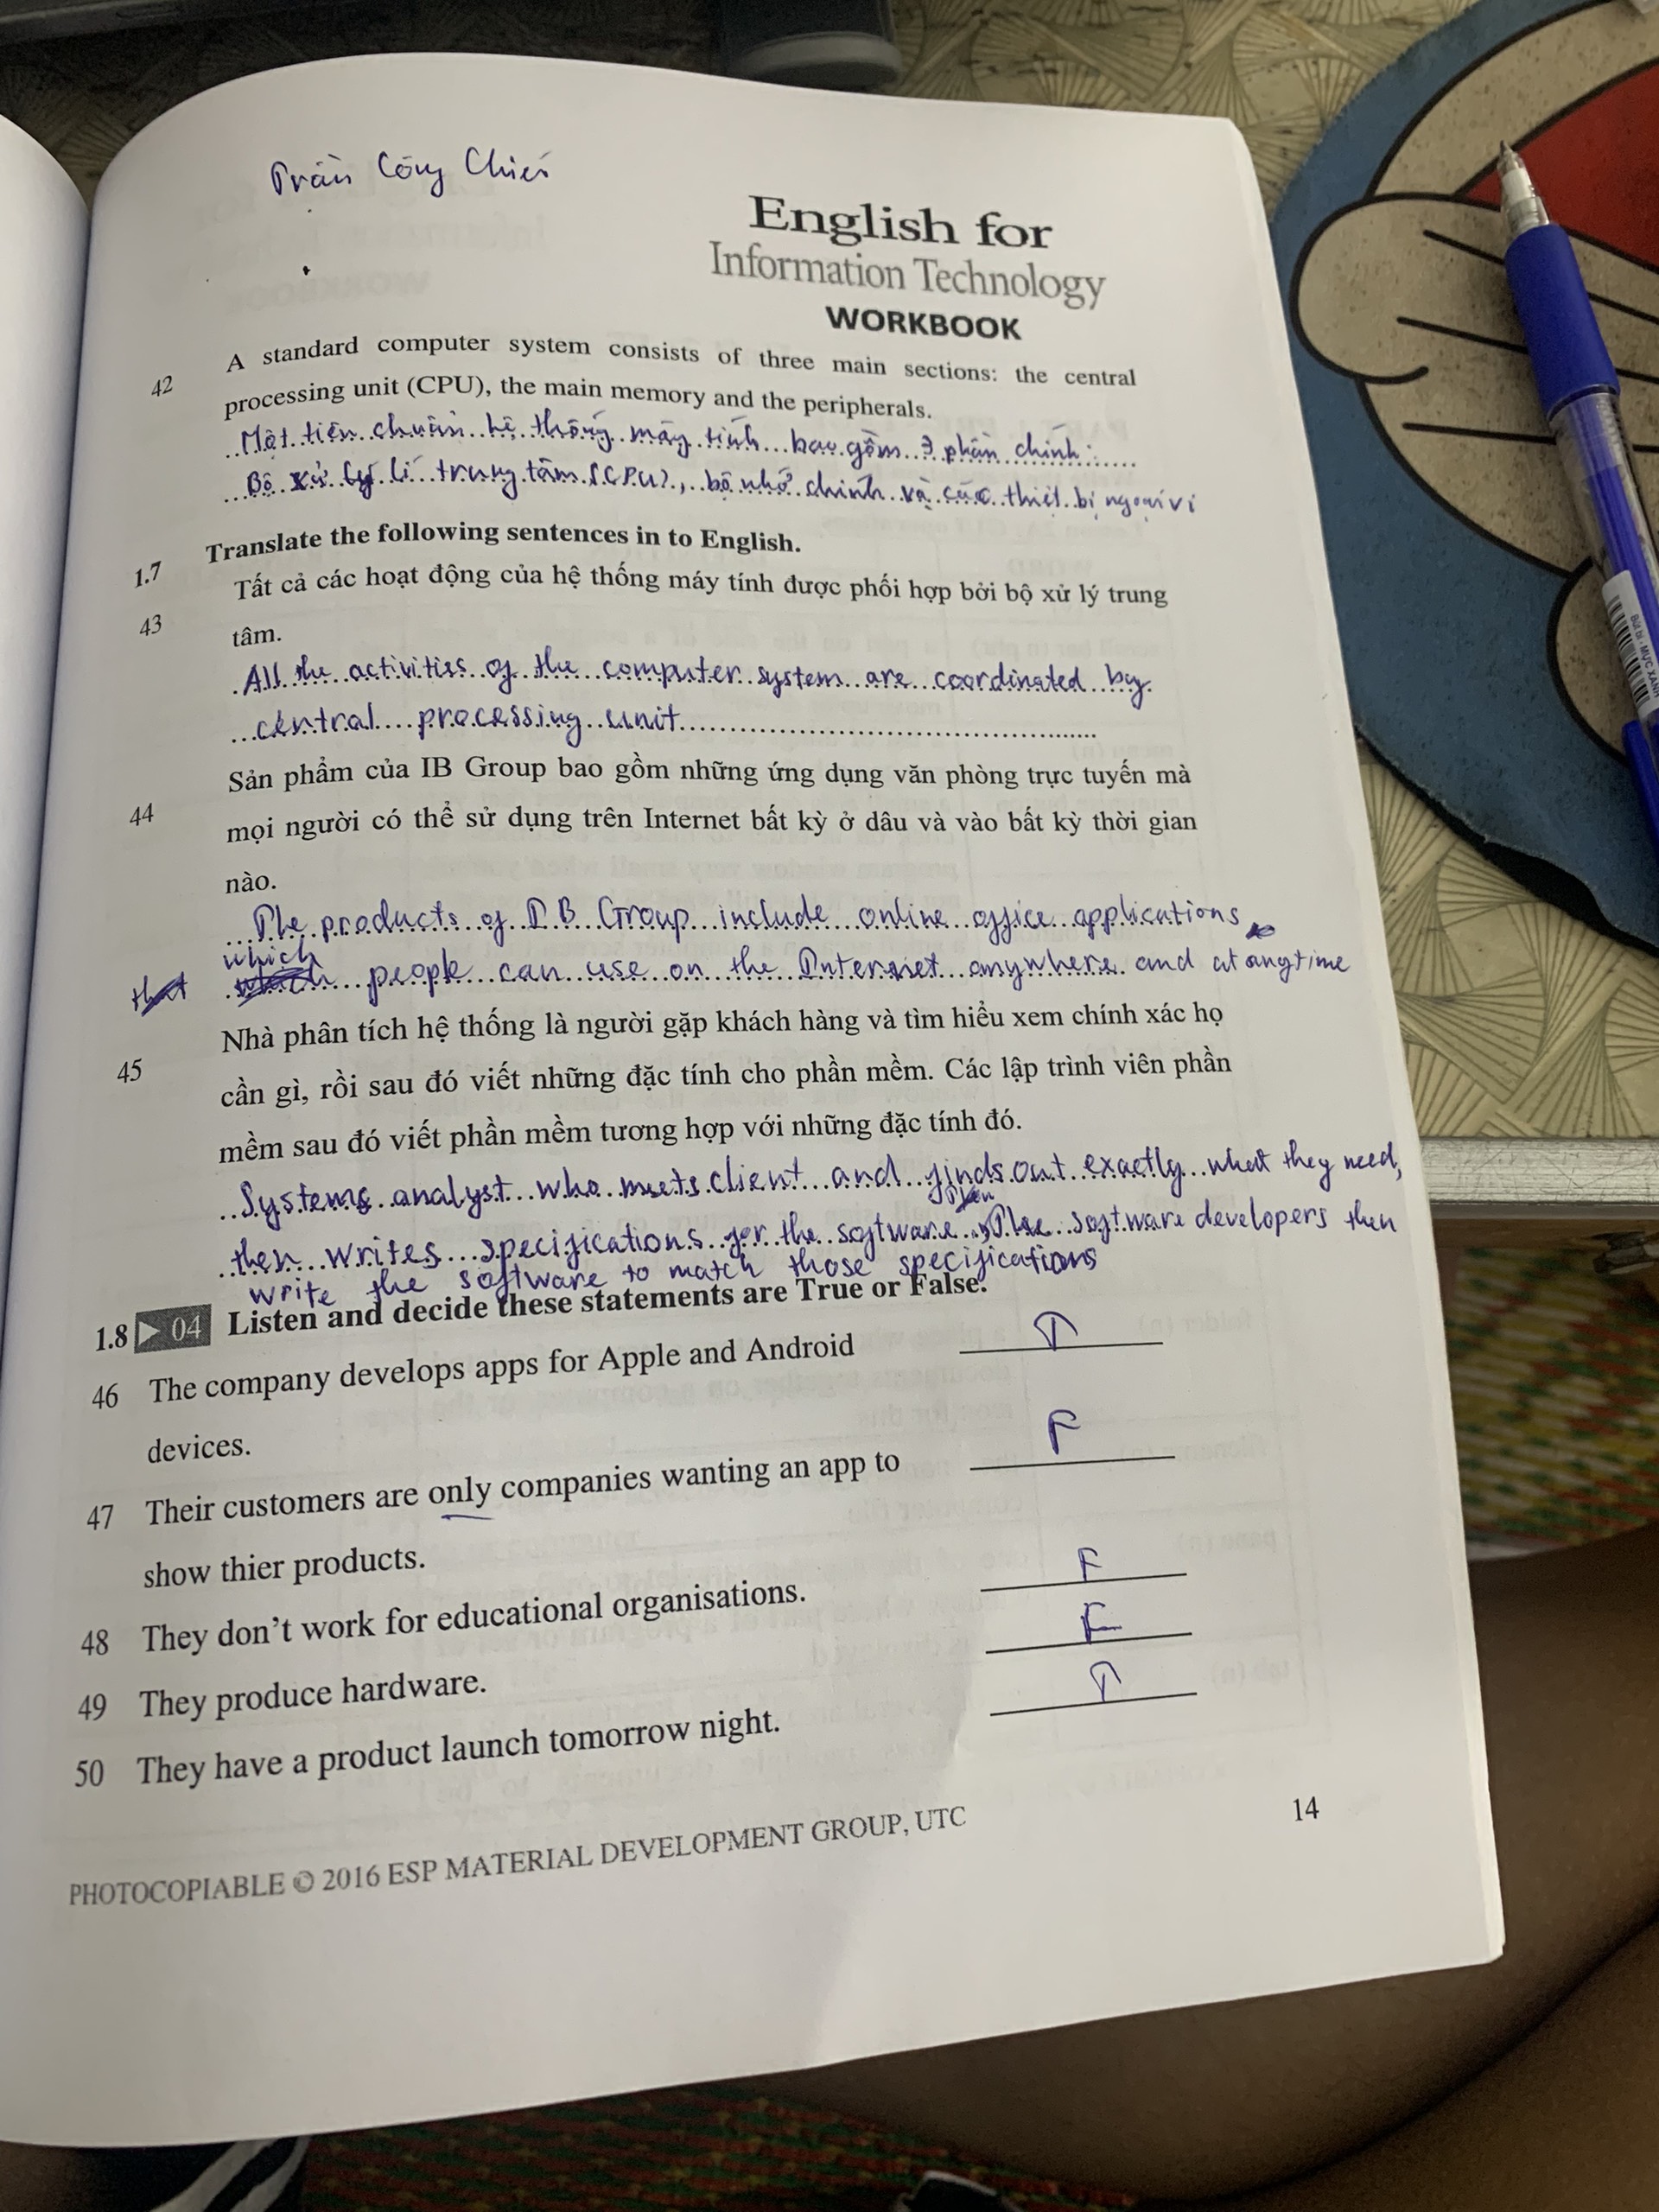 Trần Công Chiến
English for
Information Technology
WORKBOOK
42 A standard computer system consists of three main sections: the central
processing unit (CPU), the main memory and the peripherals.
Một tiên chuẩn hệ thống máy tính bao gồm 3 phần chính:
Bộ xử lí trung tâm (CPU), bộ nhớ chính và các thiết bị ngoại vi
1.7 Translate the following sentences in to English.
43 Tất cả các hoạt động của hệ thống máy tính được phối hợp bởi bộ xử lý trung
tâm.
All the activities of the computer system are coordinated by
central processing unit
44 Sản phẩm của IB Group bao gồm những ứng dụng văn phòng trực tuyến mà
mọi người có thể sử dụng trên Internet bất kỳ ở dâu và vào bất kỳ thời gian
nào.
The products of IB Group include online office applications
which
people can use on the Internet anywhere and at anytime
45 Nhà phân tích hệ thống là người gặp khách hàng và tìm hiểu xem chính xác họ
cần gì, rồi sau đó viết những đặc tính cho phần mềm. Các lập trình viên phần
mềm sau đó viết phần mềm tương hợp với những đặc tính đó.
Systems analyst who meets client and finds out exactly what they need,
then writes specifications for the software. The software developers then
write the software to match those specifications
1.8 04 Listen and decide these statements are True or False.
46 The company develops apps for Apple and Android T
devices.
47 Their customers are only companies wanting an app to F
show thier products.
48 They don't work for educational organisations. F
49 They produce hardware. F
50 They have a product launch tomorrow night. T
14
PHOTOCOPIABLE © 2016 ESP MATERIAL DEVELOPMENT GROUP, UTC